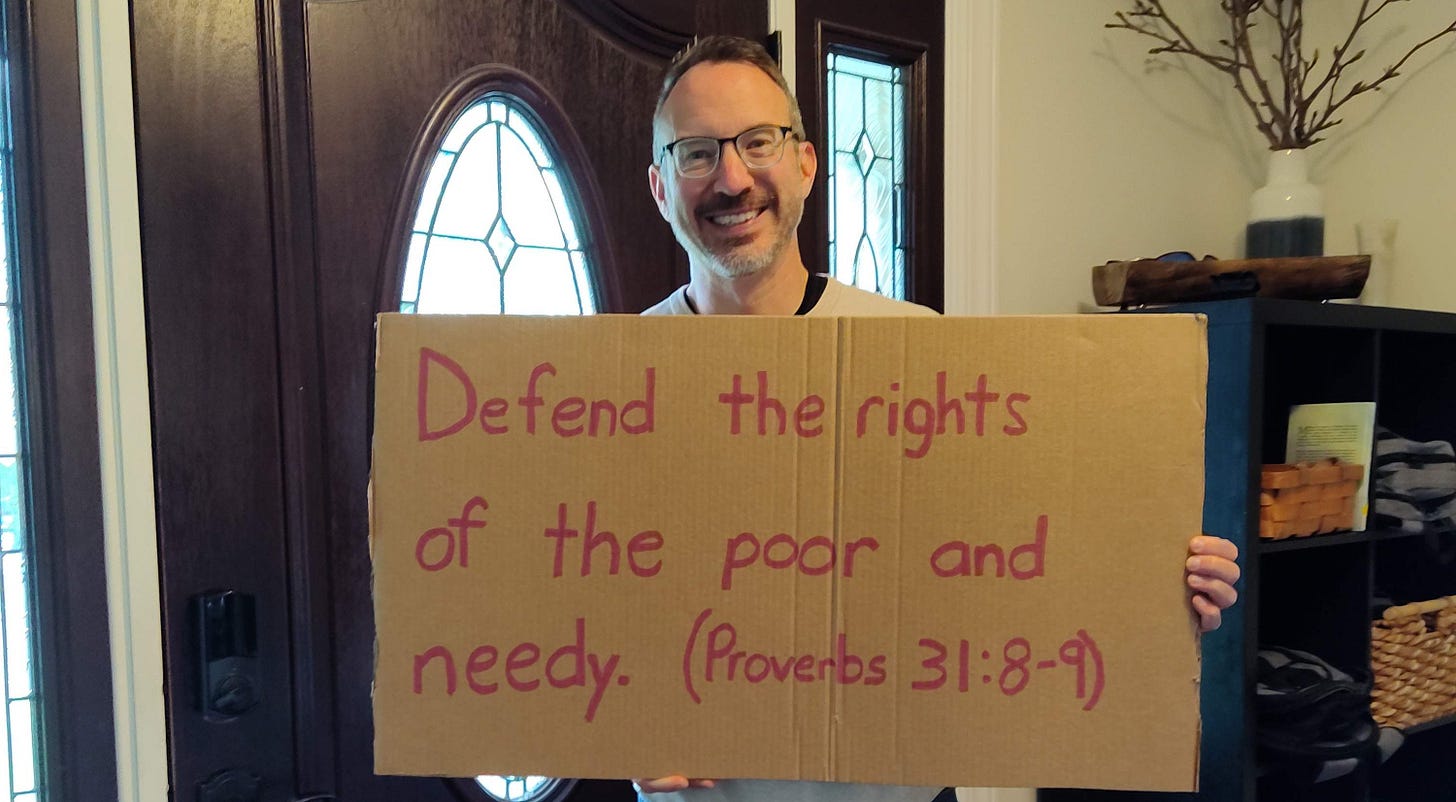 Defend the rights
of the poor and
needy. (Proverbs 31:8-9)